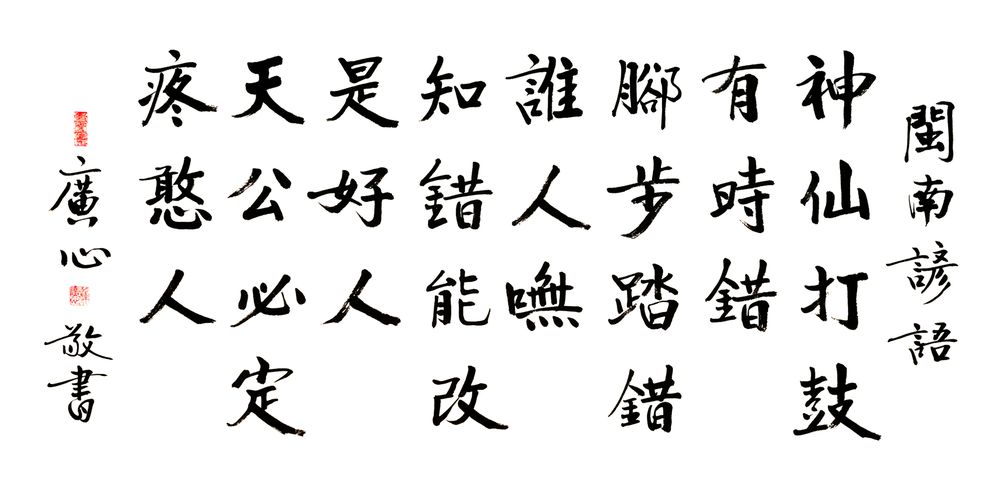 閩南諺語
神仙打鼓
有時錯
腳步踏錯
誰人嘸
知錯能改
是好人
天公必定
疼憨人
廣心敬書